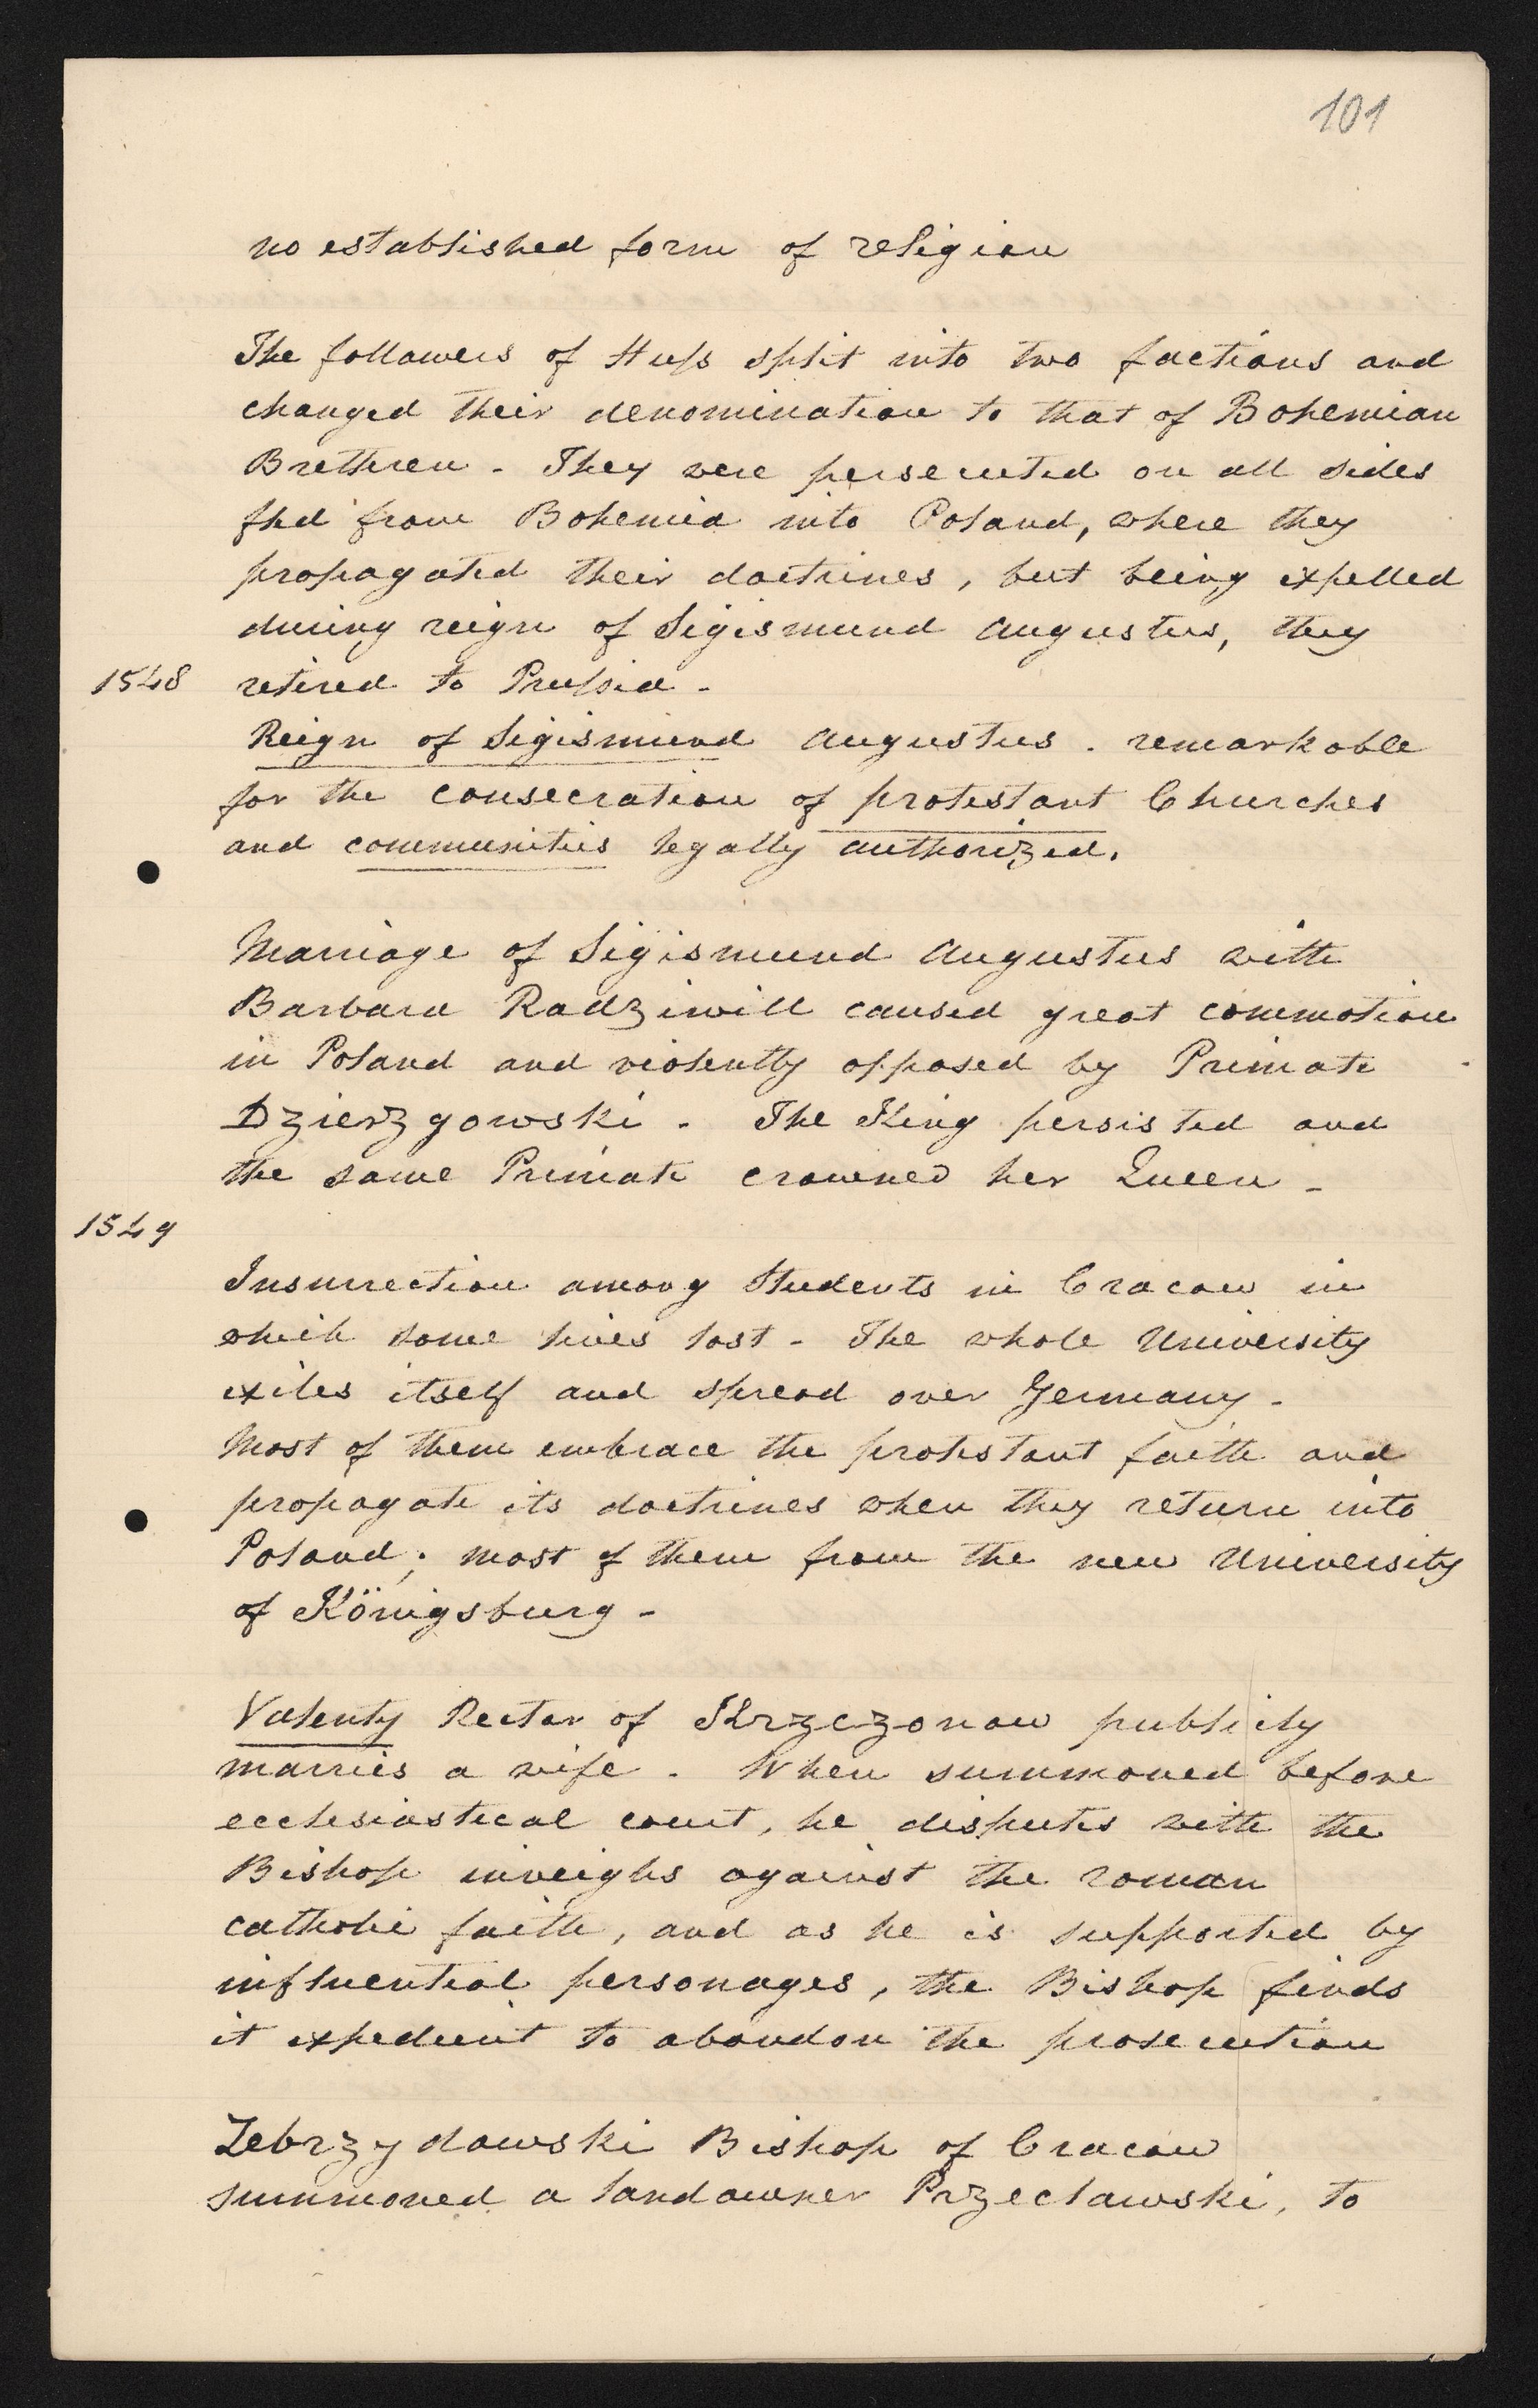 101
no established form of religion
The followers of Huss split into two factions and
changed their denomination to that of Bohemian
Brethren - They were persecuted on all sides
fled from Bohemia into Poland, where they
propagated their doctrines, but being expelled
during reign of Sigismund Augustus, they
1548 retired to Prussia -
Reign of Sigismund Augustus . remarkable
for the consecration of protestant Churches
and communities legally authorized.
Marriage of Sigismund Augustus with
Barbara Radziwill caused great commotion
in Poland and violently opposed by Primate
Dzierzgowski - The King persisted and
the same Primate crowned her Queen -
1549
Insurrection among Students in Cracow in
which some lives lost - The whole University
exiles itself and spread over Germany -
Most of them embrace the protestant faith and
propagate its doctrines when they return into
Poland; most of them from the new University
of Königsburg -
Valenty Rector of Krzczonow publicly
marries a wife . When summoned before
ecclesiastical court, he disputes with the
Bishop inveighs against the roman
catholic faith, and as he is supported by
influential personages, the Bishop finds
it expedient to abandon the prosecution
Zebrzydowski Bishop of Cracow
summoned a landowner Przeclawski, to